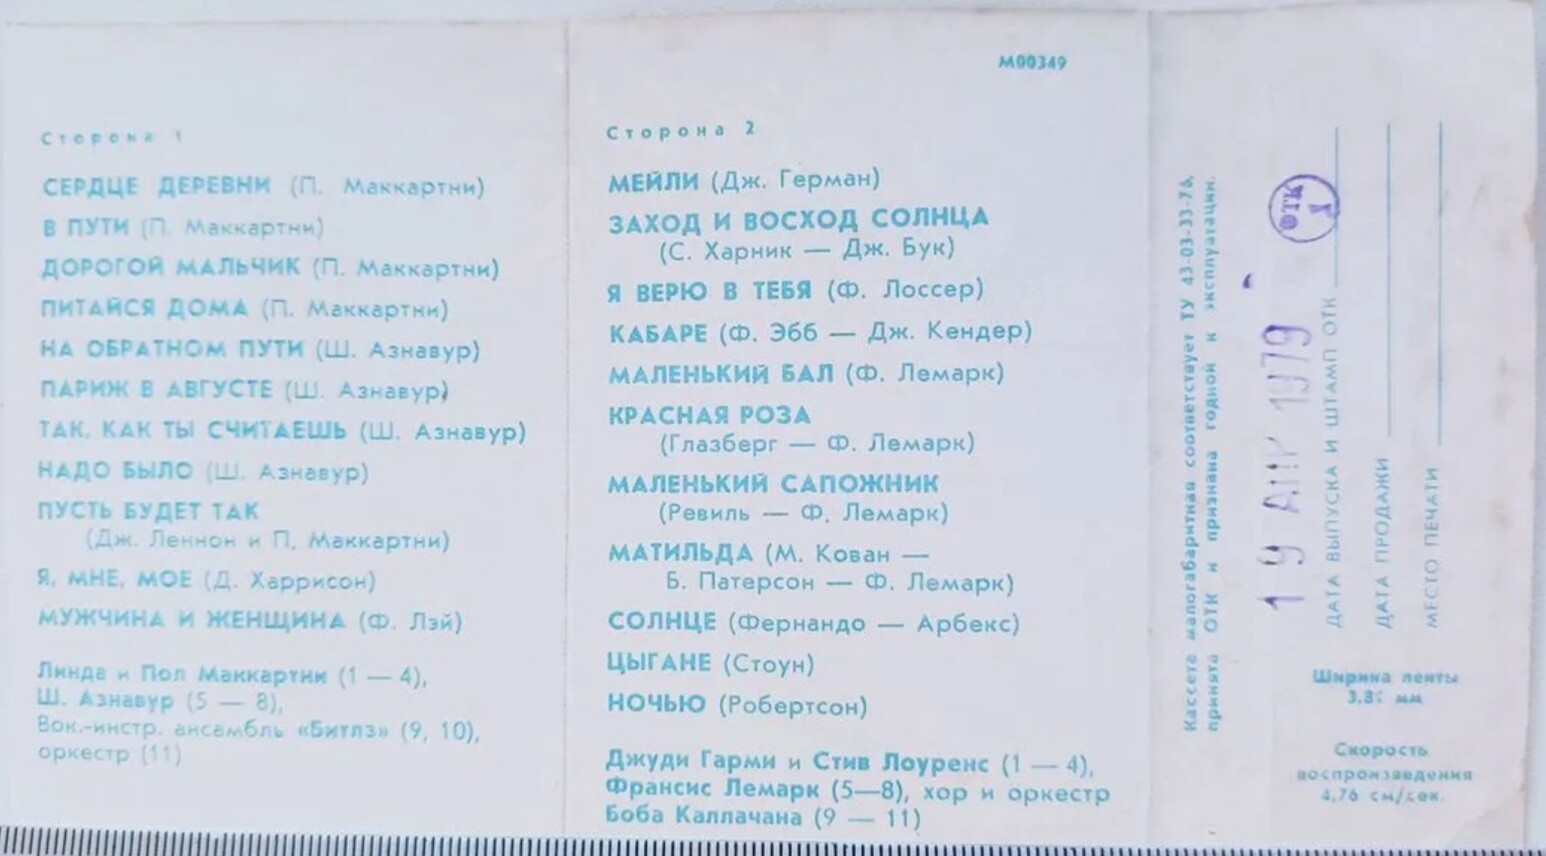 Сторона 1
СЕРДЦЕ ДЕРЕВНИ (П. Маккартни)
В ПУТИ (П. Маккартни)
ДОРОГОЙ МАЛЬЧИК (П. Маккартни)
ПИТАЙСЯ ДОМА (П. Маккартни)
НА ОБРАТНОМ ПУТИ (Ш. Азнавур)
ПАРИЖ В АВГУСТЕ (Ш. Азнавур)
ТАК, КАК ТЫ СЧИТАЕШЬ (Ш. Азнавур)
НАДО БЫЛО (Ш. Азнавур)
ПУСТЬ БУДЕТ ТАК
(Дж. Леннон и П. Маккартни)
Я, МНЕ, МОЕ (Д. Харрисон)
МУЖЧИНА И ЖЕНЩИНА (Ф. Лэй)
Линда и Пол Маккартни (1 — 4),
Ш. Азнавур (5 — 8),
Вок.-инстр. ансамбль «Битлз» (9, 10),
оркестр (11)
М00349
Сторона 2
МЕЙЛИ (Дж. Герман)
ЗАХОД И ВОСХОД СОЛНЦА
(С. Харник — Дж. Бук)
Я ВЕРЮ В ТЕБЯ (Ф. Лоссер)
КАБАРЕ (Ф. Эбб — Дж. Кендер)
МАЛЕНЬКИЙ БАЛ (Ф. Лемарк)
КРАСНАЯ РОЗА
(Глазберг — Ф. Лемарк)
МАЛЕНЬКИЙ САПОЖНИК
(Ревиль — Ф. Лемарк)
МАТИЛЬДА (М. Кован —
Б. Патерсон — Ф. Лемарк)
СОЛНЦЕ (Фернандо — Арбекс)
ЦЫГАНЕ (Стоун)
НОЧЬЮ (Робертсон)
Джуди Гарми и Стив Лоуренс (1 — 4),
Франсис Лемарк (5—8), хор и оркестр
Боба Каллачана (9 — 11)
Кассета малогабаритная соответствует ТУ 43-03-33-76,
принята ОТК и признана годной к эксплуатации.
19 АПР 1979
ОТК
1
ДАТА ВЫПУСКА И ШТАМП ОТК
ДАТА ПРОДАЖИ
МЕСТО ПЕЧАТИ
Ширина ленты
3,81 мм
Скорость
воспроизведения
4,76 см/сек.